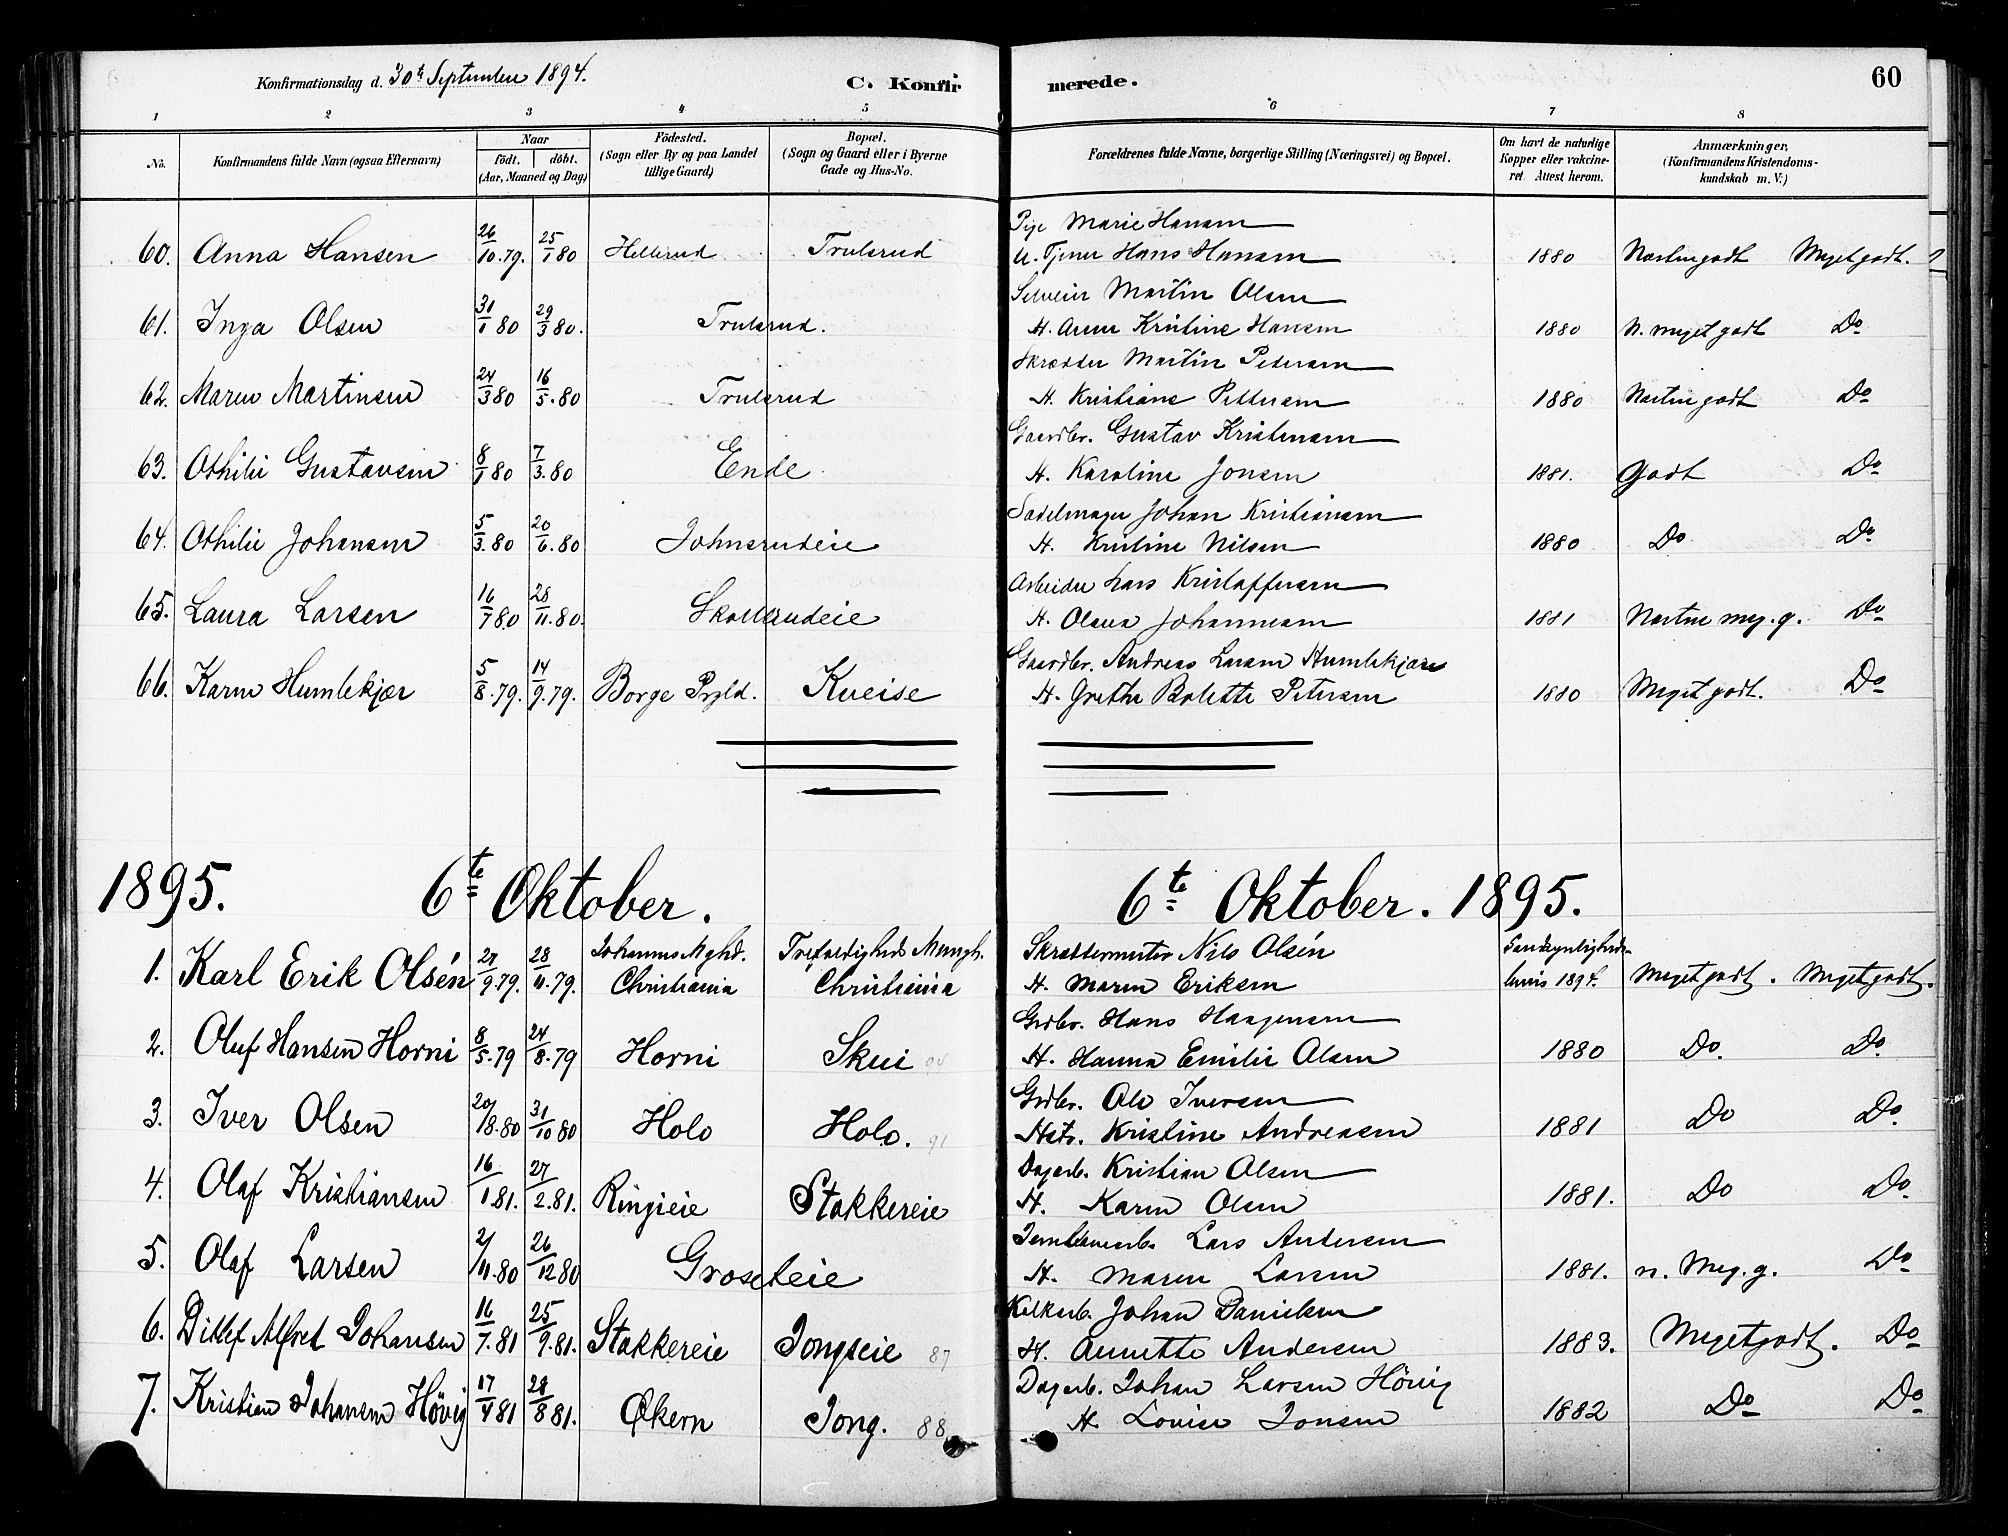 Konfirmationsdag d. 30te September 1894. C. Konfirmerede. 60
1 2 3 4 5 6 7 8
No. Konfirmandens fulde Navn (ogsaa Efternavn) Naar født. døbt. (Aar, Maaned og Dag) Fødested. (Sogn eller By og paa Landet tillige Gaard) Bopæl. (Sogn og Gaard eller i Byerne Gade og Hus-No. Forældrenes fulde Navne, borgerlige Stilling (Næringsvei) og Bopæl. Om havt de naturlige Kopper eller vakcineret. Attest herom. Anmærkninger. (Konfirmandens Kristendomskundskab m. V.)
Pige Marie Hansen
60. Anna Hansen 26/10.79. 25/1 80 Hellerud Trulsrud U. Tjener Hans Hansen 1880 Næsten godt Meget godt.
Selveier Martin Olsen
61. Inga Olsen 31/1 80 29/3 80. Trulsrud. H. Anne Kristine Hansen 1880 N. meget godt Do
Skrædder Martin Pedersen
62. Maren Martinsen 24/3 80 16/5.80 Trulsrud H. Kristiane Pettersen 1880 Næsten godt Do
Gaardbr. Gustav Kristensen
63. Othilie Gustavsen 8/1 80 7/3.80 Ende H. Karoline Jonsen 1881. Godt Do
Sadelmager Johan Kristiansen
64. Othilie Johansen 5/3.80 20/6.80 Johnsrudeie H. Kristine Nilsen 1880 Do Do
Arbeider Lars Kristoffersen
65. Laura Larsen 16/7 80 28/11.80. Skollerudeie H. Olava Johannesen 1881 Næsten meg. g. Do
Gaardbr. Andreas Larsen Humlekjær
66. Karen Humlekjær 5/8.79. 14/9.79. Borge Prgld. Kveise H. Grethe Bolette Petersen 1880 Meget godt. Do
1895. 6te Oktober. 6te Oktober. 1895.
Johannes Mghd. Trefoldigheds Mengh. Skræddermester Nils Olsén Sandsynligheds-
1. Karl Erik Olsén 27/9.79. 28/11.79. Christiania Christiania H. Maren Eriksen 1894. Meget godt. Meget godt.
Grdbr. Hans Haagensen
2. Oluf Hansen Horni 8/5.79 24/8.79 Horni Skui 94 H. Hanna Emilie Olsen 1880 Do. Do.
Grdbr. Ole Iversen
3. Iver Olsen 20/8.80 31/10 80 Holo Holo. 91 Hstr. Kristine Andreasen 1881 Do Do.
Dagarb. Kristian Olsen
4. Olaf Kristiansen 16/1 81. 27/2.81. Ringieie Stokkereie H. Karen Olsen 1881. Do Do.
Lars Andersen
5. Olaf Larsen 2/11.80 26/12 80 Groseteie H. Maren Larsen 1881. n. Meg. g. Do
Kalkarb. Johan Danielsen
6. Ditlef Alfred Johansen 16/7.81 25/9.81. Stokkereie Jongseie 87 H. Annette Andersen 1883. Meget godt. Do
Dagarb. Johan Larsen Høvig
7. Kristian Johansen Høvig 17/4 81 28/8 81. Økern Jong. 88 H. Lovise Jonsen 1882 Do Do